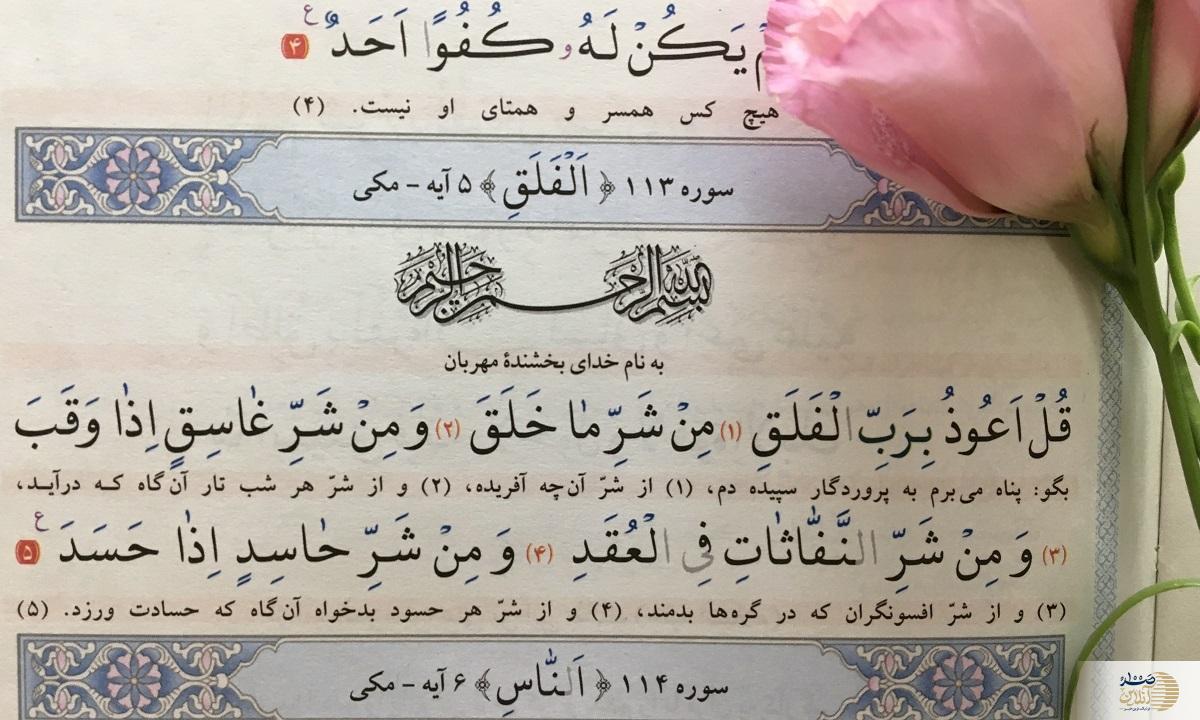 یَکُنْ لَهُ و کُفُوًا اَحَدٌ ﴿۴﴾ ع
هیچ کس همسر و همتای او نیست. (۴)
سوره ۱۱۳ ﴿اَلْفَلَقِ﴾ ۵ آیه - مکی
بسم الله الرحمن الرحیم
به نام خدای بخشندهٔ مهربان
قُلْ اَعُوذُ بِرَبِّ الْفَلَقِ (۱) مِنْ شَرِّ مٰا خَلَقَ (۲) وَ مِنْ شَرِّ غٰاسِقٍ اِذٰا وَقَبَ
بگو: پناه می‌برم به پروردگار سپیده دم، (۱) از شرّ آن‌چه آفریده، (۲) و از شرّ هر شب تار آن‌گاه کـه درآیـد،
(۳) وَ مِنْ شَرِّ النَّفّٰاثٰاتِ فِی الْعُقَدِ (۴) وَ مِنْ شَرِّ حٰاسِدٍ اِذٰا حَسَدَ ﴿۵﴾ ع
(۳) و از شرّ افسونگران که در گره‌ها بدمند، (۴) و از شرّ هر حسود بدخواه آن‌گاه که حسادت ورزد. (۵)
سوره ۱۱۴ ﴿اَلنّٰاسِ﴾ ۶ آیه - مکی
صد آنلاین